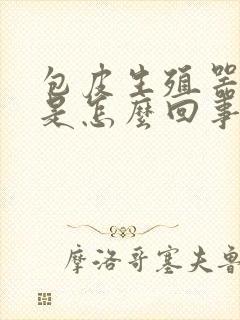 包皮生殖器
是怎麼回事
摩洛哥塞夫魯